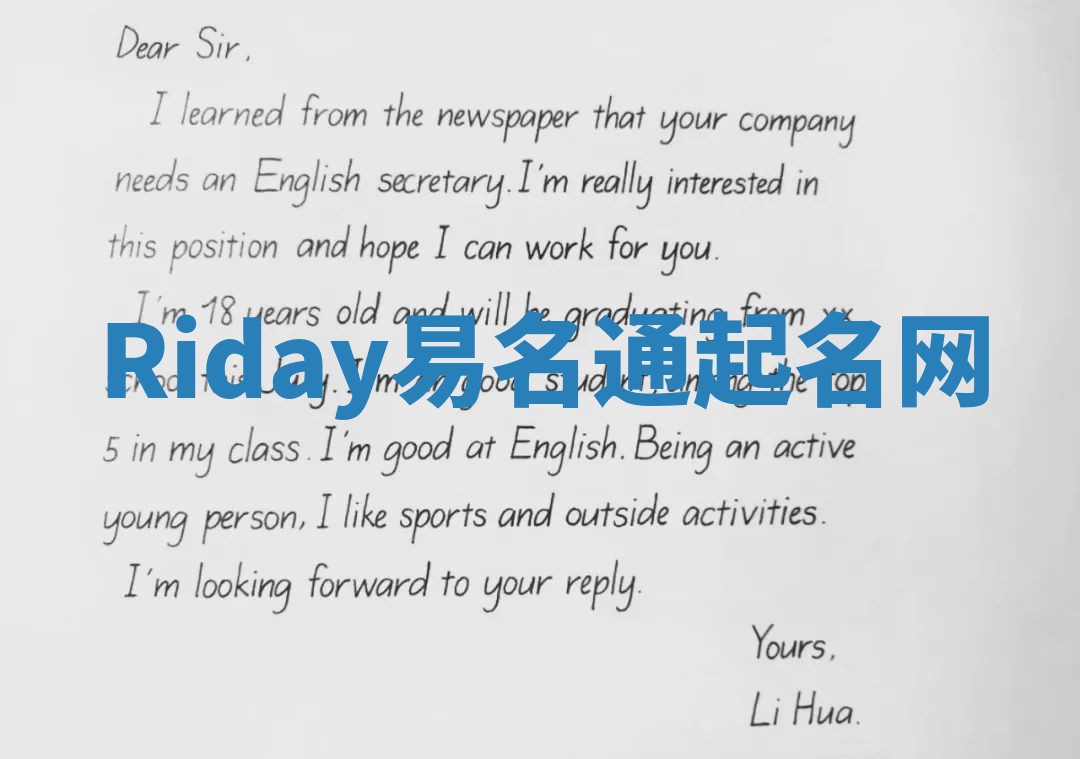 Dear Sir,
I learned from the newspaper that your company
needs an English secretary. I'm really interested in
this position and hope I can work for you.
I'm 18 years old and will be graduating from xx
Riday易名通起名网
school this July. I'm a good student, among the top
5 in my class. I'm good at English. Being an active
young person, I like sports and outside activities.
I'm looking forward to your reply.
Yours,
Li Hua.